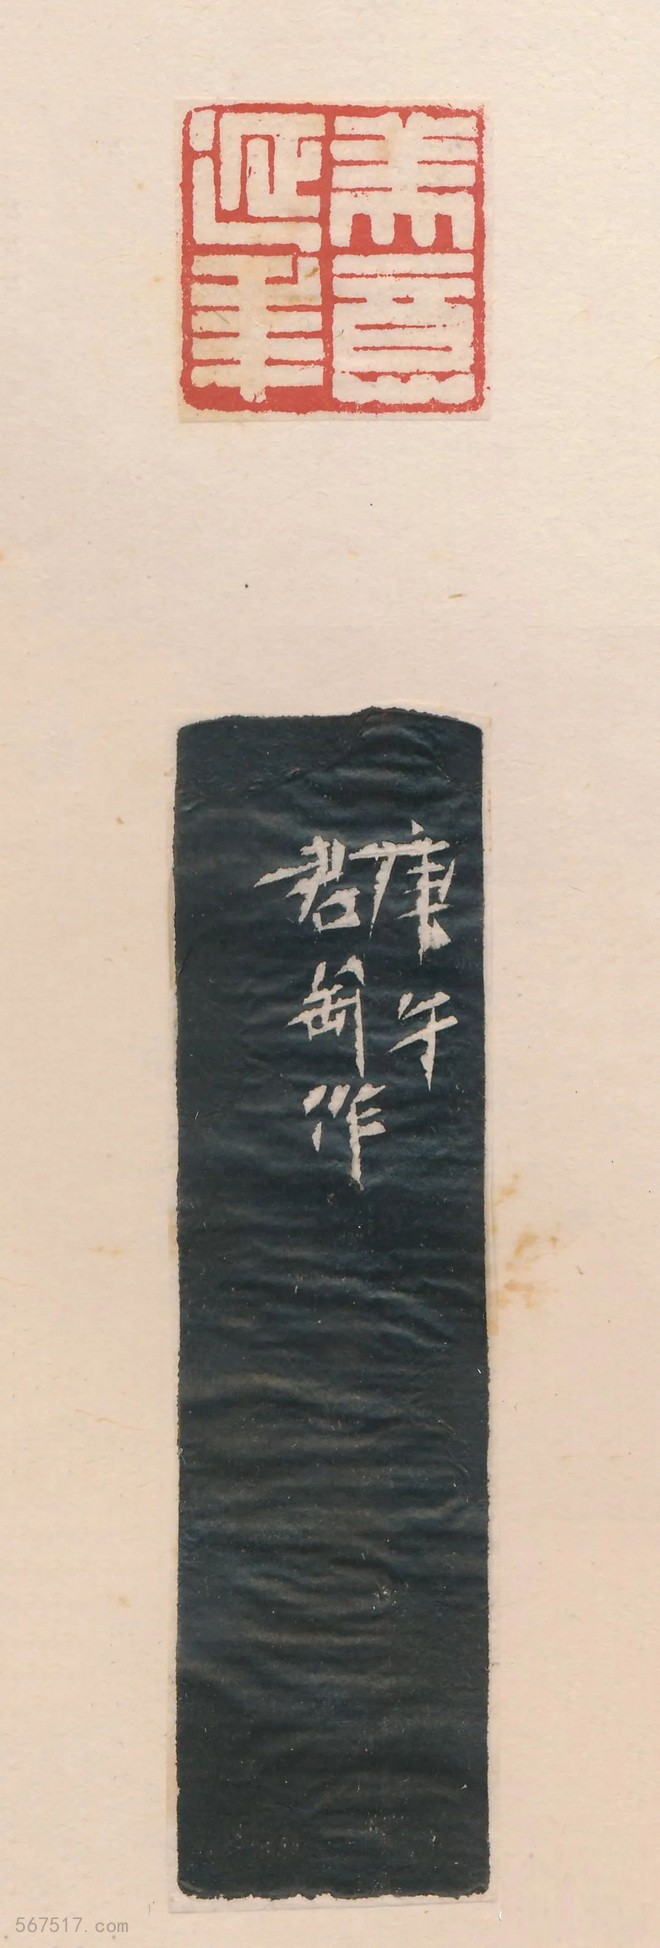 美意
延年
庚午
君匋作
567517.com